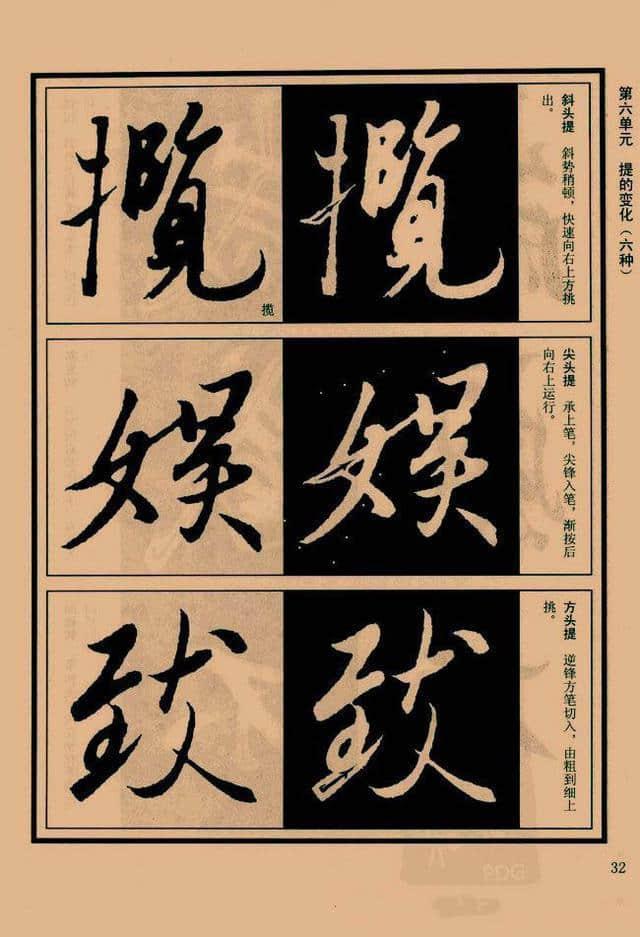 第六单元　提的变化（六种）
斜头提　斜势稍顿，快速向右上方挑
出。
攬
攬
揽
尖头提　承上笔，尖锋入笔，渐按后
向右上运行。
娱
娱
方头提　逆锋方笔切入，由粗到细上
挑。
致
致
32
PDG